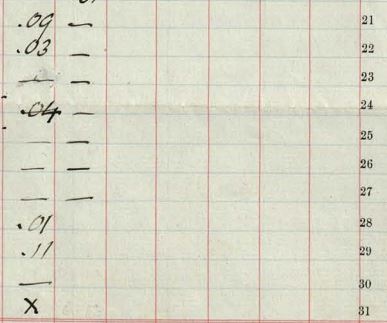 .09 — 21
.03 — 22
— — 23
.04 — 24
— — 25
— — 26
— — 27
.01 28
.11 29
— 30
X 31